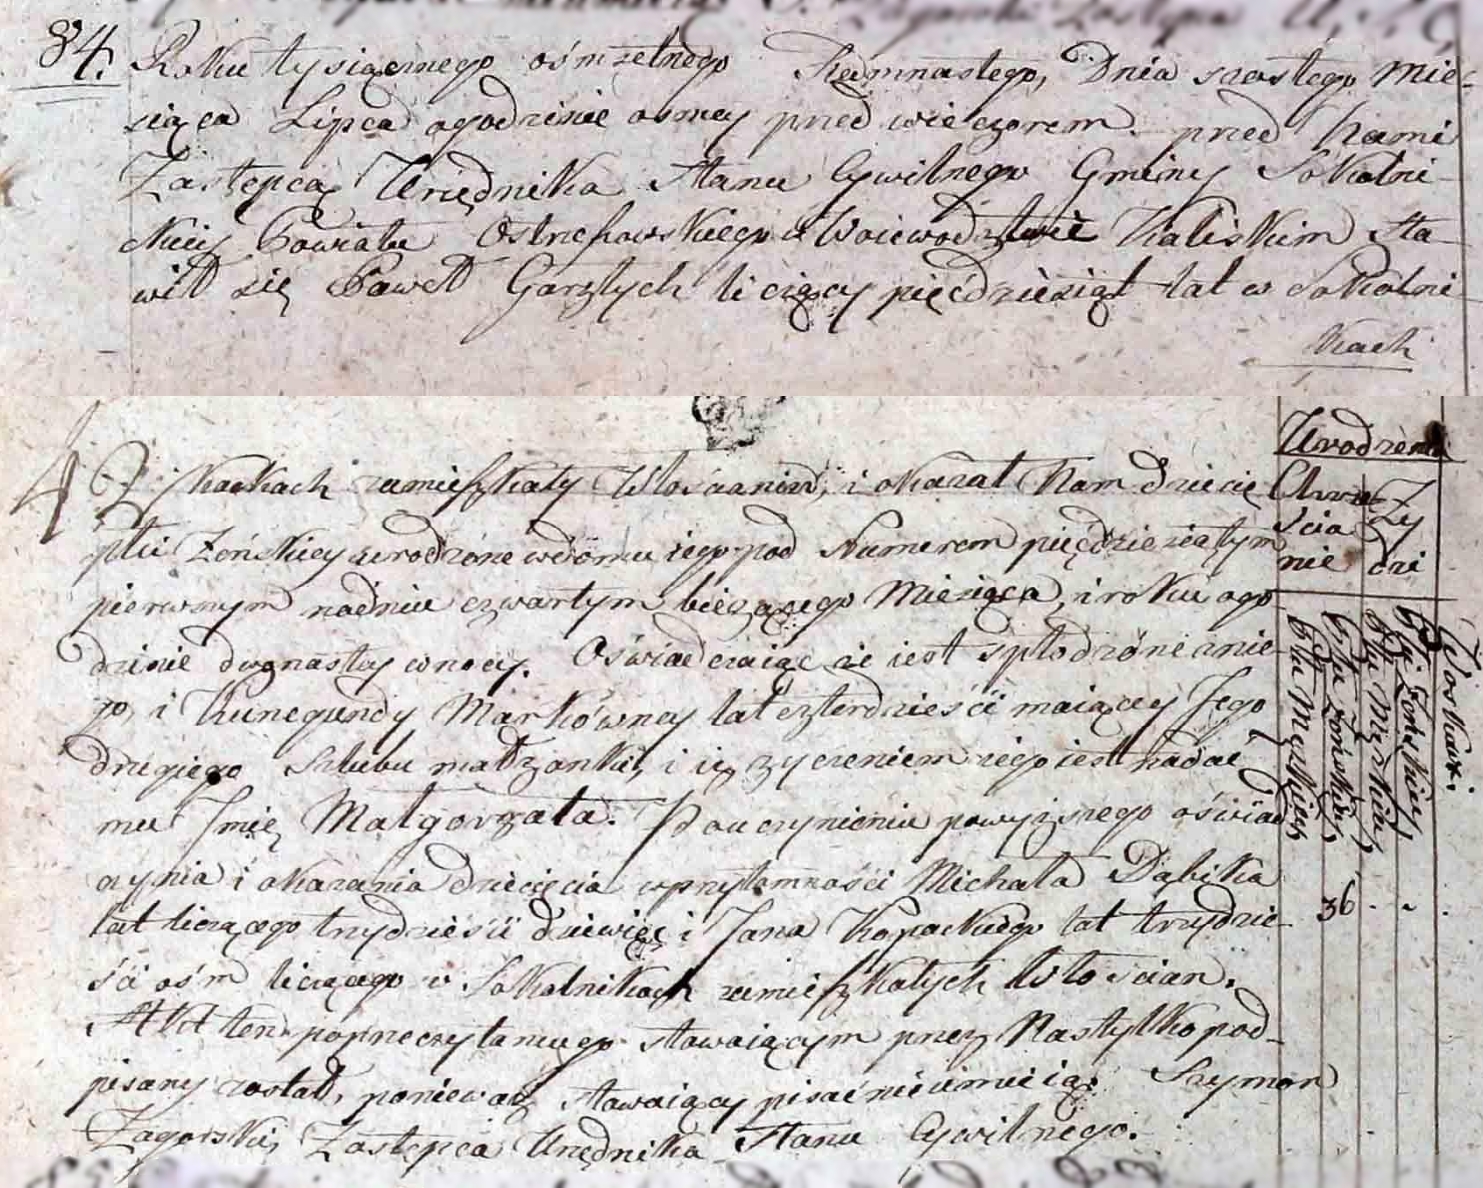 84. Roku tysiącznego ośmsetnego Siedmnastego, Dnia szostego mie-
siąca Lipca o godzinie osmey przed wieczorem. przed Nami
Zastępcą Urzędnika Stanu Cywilnego Gminy Sokolni-
ckiey Powiatu Ostrzeszowskiego w Woiewodztwie Kaliskim sta-
wił się Paweł Garstych liczący pięćdziesiąt lat w Sokolni-
kach
kach zamieszkały Włoscianin, i okazał Nam dziecię
płci Zeńskiey urodzone w domu iego pod Numerem pięćdziesiątym
pierwszym na dniu czwartym bieżącego Miesiąca, i roku o go-
dzinie dwunastey w nocy. Oświadczaiąc że iest spłodzone z nie-
go, i Kunegundy Markówney lat czterdzieści maiącey Jego
drugiego Szlubu małżonki, i iż życzeniem iego iest nadać
mu Imię Małgorzata. Po uczynieniu powyższego oświad-
czynia i okazania dziecięcia w przytomności Michała Dąbika
lat liczącego trzydzieści dziewięć i Jana Kopackiego lat trzydzie-
ści ośm liczącego w Sokolnikach zamieszkałych Włoscian.
Akt ten po przeczytaniu go stawaiącym przez Nas tylko pod-
pisany został, ponieważ stawaiący pisać nieumieią. Szymon
Zagorski, Zastępca Urzędnika Stanu Cywilnego.
Urodzenia
Chrze-
ścia
nie
Ży
dzi
Płci Męzkiey
Płci Zeńskiey
Płci Męzkiey
Płci Zeńskiey
36